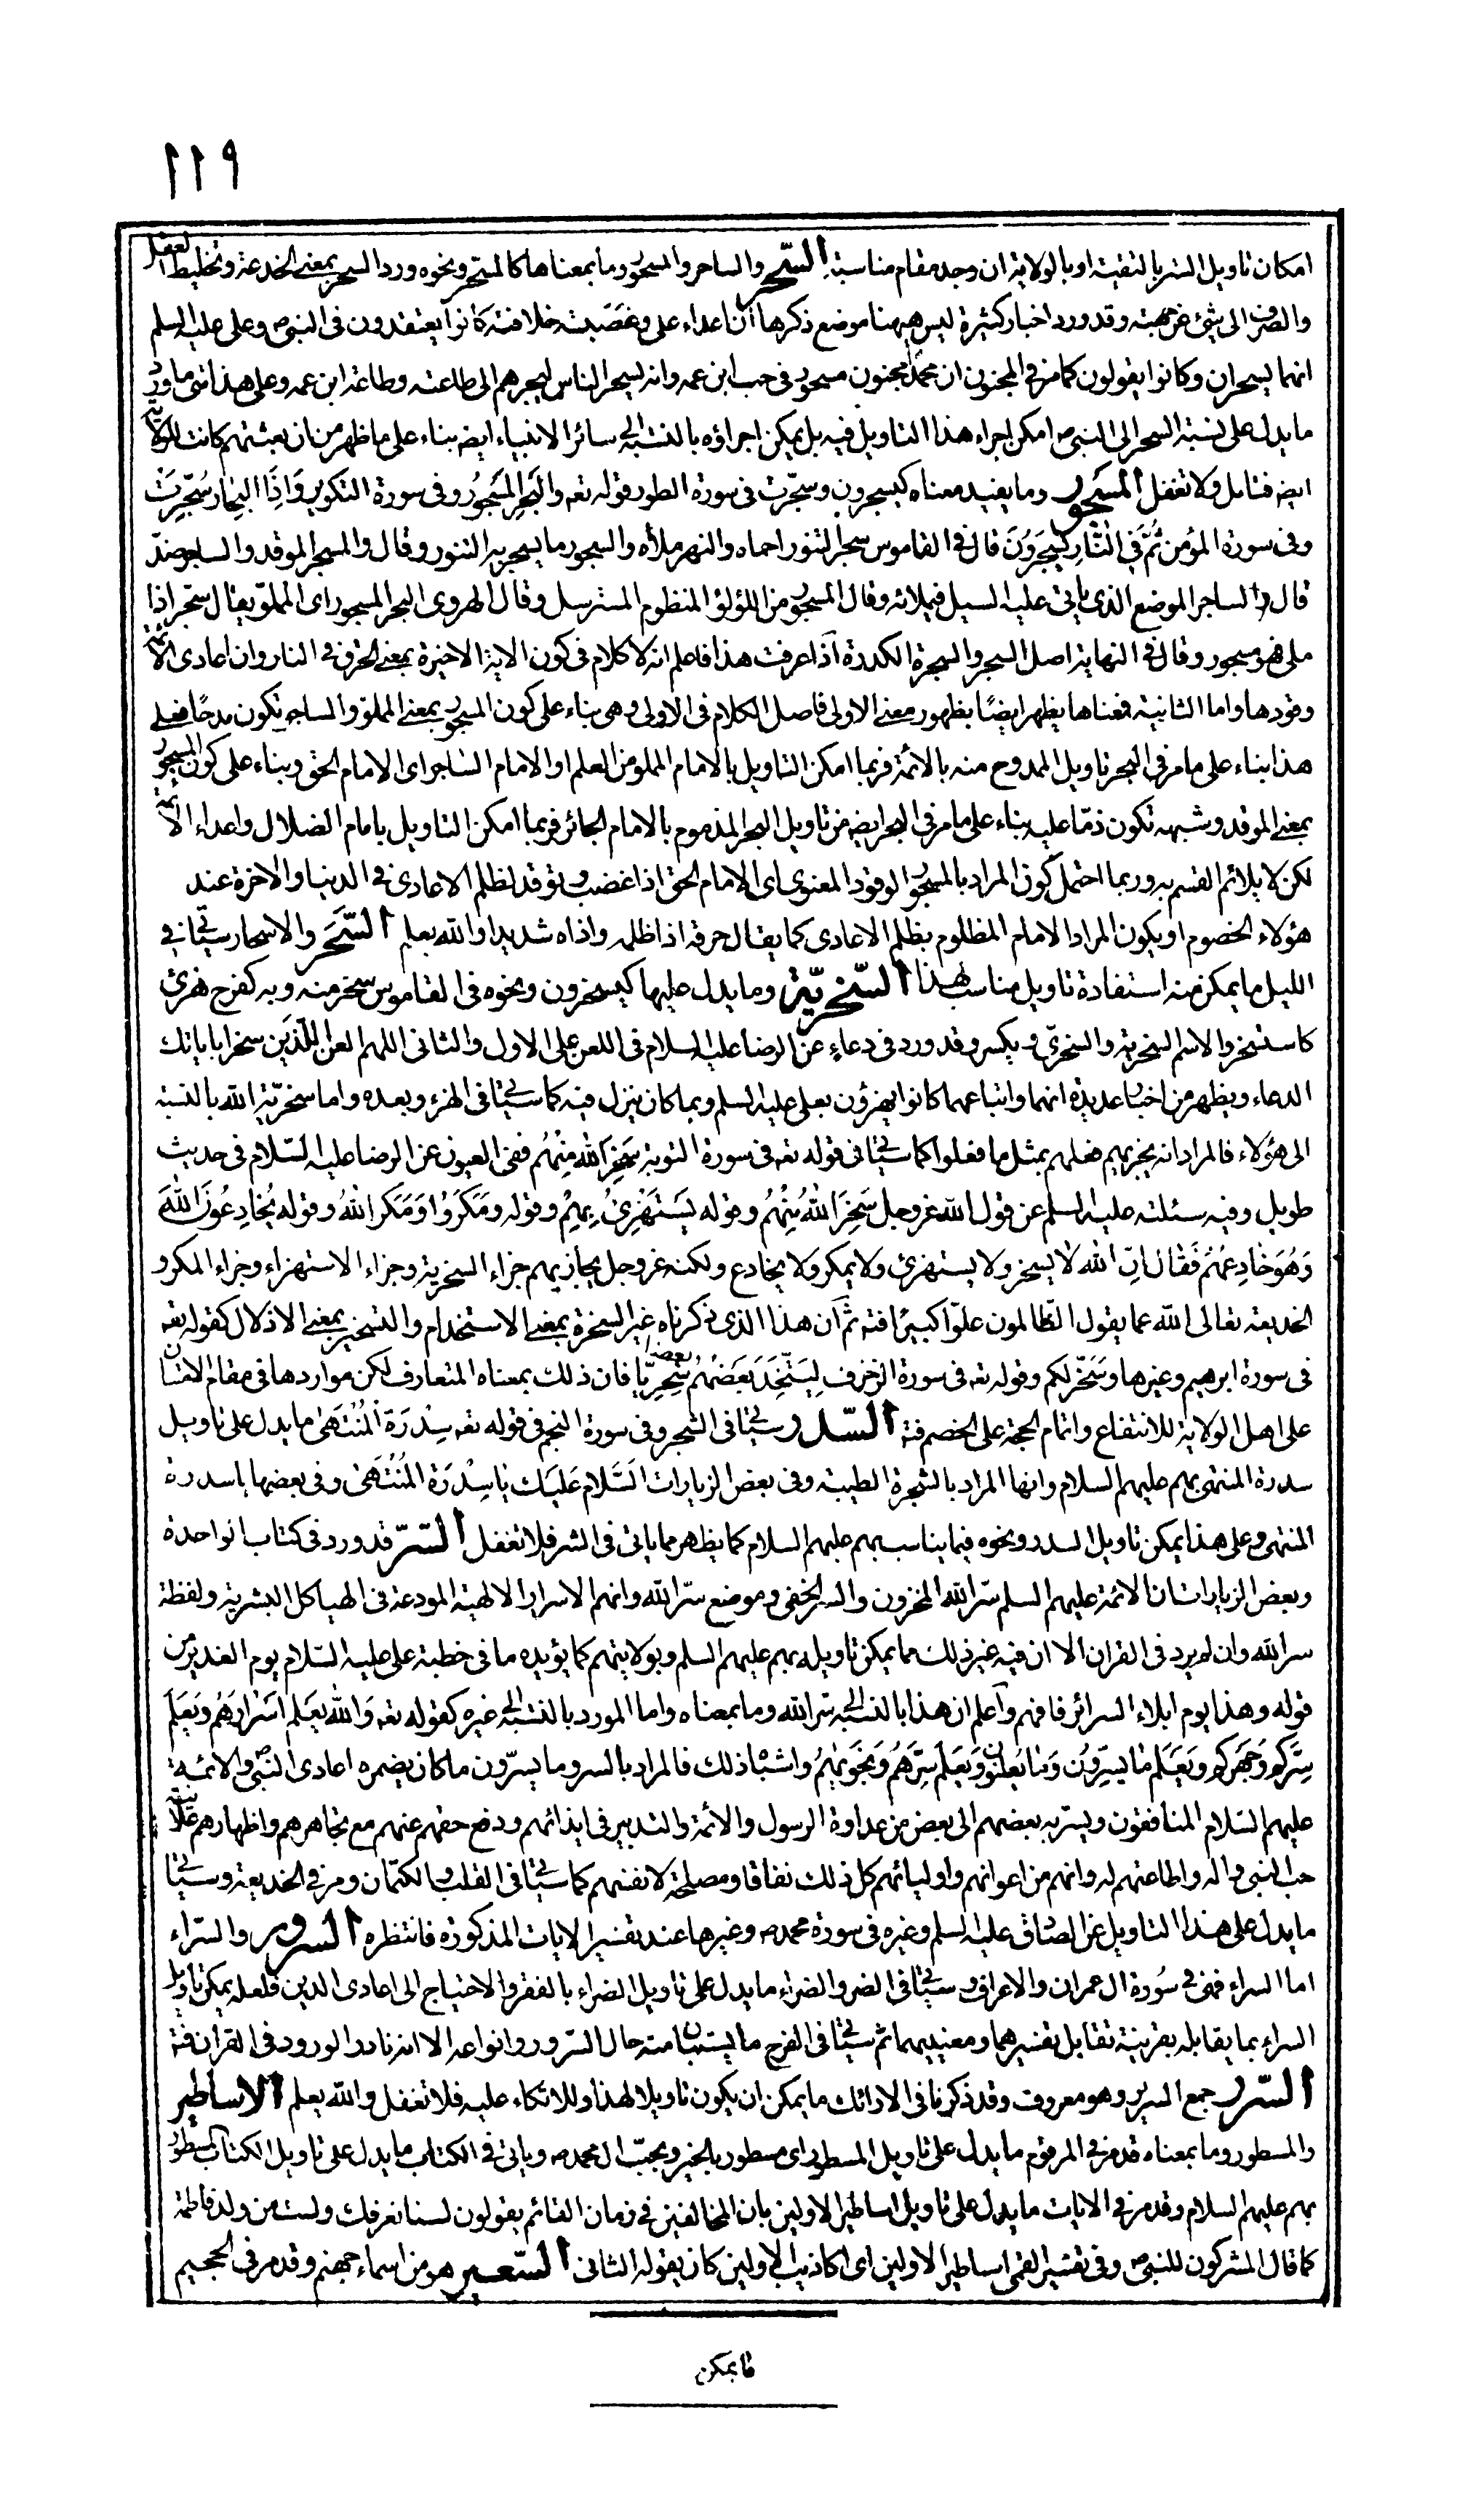 ١١٩
امكان تاويل الستر بالتقية او بالولاية ان وجد مقام مناسبة السّحر والساحر والمسحور وما بمعناها كالمسحّر ونحوه ورد السحر بمعنى الخدعة وتخليط العقل
والصرف الى شئ عن جهته وقد ورد اخبار كثيرة ليس هيهنا موضع ذكرها ان اعداء على وغصبته خلافته كانوا يعتقدون فى النبى ص وعلى عليه السلم
انهما يسحران وكانوا يقولون كما مر فى المجنون ان محمدا مجنون مسحور فى حب ابن عمه وانه يسحر الناس ليجرهم الى طاعته وطاعة ابن عمه وعلى هذا متى ما ورد
ما يدل على نسبة السحر الى النبى ص امكن اجراء هذا التاويل فيه بل يمكن اجراؤه بالنسبة الى سائر الانبياء ايضه بناء على ما ظهر من ان بعثتهم كانت للولاية
ايضه فتامل ولا تغفل المسجور وما يفيد معناه كيسجرون وسجّرت فى سورة الطور قوله تعه والبحر المسجور وفى سورة التكوير وَاِذَا البِحار سُجِّرَتْ
وفى سورة المؤمن ثُمَّ فى النَّارِ يُسْجَرُونَ قال فى القاموس سجر التنور احماه والنهر ملأه والسجور ما يسجر به التنور وقال والمسجر الموقد والساجر ضدّ
قال والساجر الموضع الذى ياتى عليه السيل فيملائه وقال المسجور من اللؤلؤ المنظوم المسترسل وقال الهروى البحر المسجور اى المملوّ يقال سجر اذا
ملى فهو مسجور وقال فى النهاية اصل السجر والسجرة الكدرة اذا عرفت هذا فاعلم انه لا كلام فى كون الاية الاخيرة بمعنى الحرق فى النار وان اعادى الائمة
وقودها واما الثانية فمعناها يظهر ايضًا بظهور معنى الاولى فاصل الكلام فى الاولى وهى بناء على كون المسجور بمعنى المملوّ والساجر تكون مدحًا فعلى
هذا بناء على ما مر فى البحر تاويل الممدوح منه بالائمة فربما امكن التاويل بالامام المملو من العلم او الامام الساجر اى الامام الحق وبناء على كون المسجور
بمعنى الموقد وشبهه تكون ذمّا عليه بناء على ما مر فى البحر ايضه من تاويل البحر المذموم بالامام الجائر فربما امكن التاويل بامام الضلال واعداء الائمة
لكن لا يلائم القسم به وربما احتمل كون المراد بالمسجور الوقود المعنوى اى الامام الحق اذا غضب وتوقد لظلم الاعادى فى الدنيا والاخرة عند
هؤلاء الخصوم او يكون المراد الامام المظلوم بظلم الاعادى كما يقال حرقه اذا ظلمه واذاه شديدا والله يعلم السَّحَر والاسحار سيأتى فى
الليل ما يمكن منه استفادة تاويل مناسب لهذا السّخريّة وما يدل عليها كيسخرون ونحوه فى القاموس سخر منه وبه كفرح هزئ
كاستسخر والاسم السخرية والسخرىّ ويكسر وقد ورد فى دعاءٍ عن الرضا عليه السلام فى اللعن على الاول والثانى اللهم العن اللّذَين سخرا باياتك
الدعاء ويظهر من اخبار عديدة انهما واتباعهما كانوا يهزؤن بعلى عليه السلم وبما كان ينزل فيه كما سيأتى فى الهزء وبعده واما سخريّة الله بالنسبة
الى هؤلاء فالمراد انه يجزيهم فعلهم بمثل ما فعلوا كما سيأتى فى قوله تعه فى سورة التوبة سَخِرَ اللهُ مِنْهُم ففى العيون عن الرضا عليه السّلام فى حديث
طويل وفيه سئلته عليه السلم عن قول الله عز وجل سَخِرَ اللهُ مِنْهُمْ وقوله يَسْتَهْزِئُ بِهِمْ وقوله ومَكَرُوْا وَمَكَرَ اللهُ وقوله يُخَادِعُونَ اللهَ
وَهُوَ خَادِعُهُمْ فَقال اِنّ الله لا يسخر ولا يستهزئ ولا يمكر ولا يخادع ولكنه عز وجل يجازيهم جزاء السخرية وجزاء الاستهزاء وجزاء المكر و
الخديعة تعالى الله عما يقول الظالمون علوّا كبيرًا فته ثم ان هذا الذى ذكرناه غير السخرة بمعنى الاستخدام والتسخير بمعنى الاذلال كقوله تعه
فى سورة ابرهيم وغيرها وَسَخَّرَ لكم وقوله تعه فى سورة الزخرف لِيَتَّخِذَ بَعْضُهُمْ بعضا سُخْرِيًّا فان ذلك بمعناه المتعارف لكن مواردها فى مقام الامتنان
على اهل الولاية للانتفاع واتمام الحجة على الخصم فته السّدر سيأتى فى الشجر وفى سورة النجم فى قوله تعه سِدْرَةِ الْمُنْتَهَىٰ ما يدل على تاويل
سدرة المنتهى بهم عليهم السلام وانها المراد بالشجرة الطيبة وفى بعض الزيارات السَّلام عَلَيْك يا سِدْرَة المُنْتَهَىٰ وفى بعضها يا سدرة
المنتهى وعلى هذا يمكن تاويل السدر ونحوه فيما يناسب بهم عليهم السلام كما يظهر مما ياتى فى الشجر فلا تغفل السّرّ قد ورد فى كتاب الواحدة
وبعض الزيارات ان الائمة عليهم السلم سرّ الله المخزون والسر الخفى وموضع سرّ الله وانهم الاسرار الالهية المودعة فى الهياكل البشرية ولفظة
سر الله وان لم يرد فى القران الا ان فيه غير ذلك مما يمكن تاويله بهم عليهم السلم وبولايتهم كما يؤيده ما فى خطبة على عليه السّلام يوم الغدير من
قوله وهذا يوم ابلاء السرائر فافهم واعلم ان هذا بالنسبة الى سرّ الله وما بمعناه واما المورد بالنسبة الى غيره كقوله تعه وَاللهُ يَعْلَم اسْرَارَهُم ويَعْلَمُ
سِرَّكم وَجَهْرَكم ويَعْلَم مَا يُسِرُّون وَمَا يُعْلِنُونَ وَيَعْلَم سِرَّهُم وَنَجْوَيهُمْ واشباه ذلك فالمراد بالسر وما يسرّون ما كان يضمره اعادى النبى ص والائمة
عليهم السّلام المنافقون ويسرّ به بعضهم الى بعض من عداوة الرسول والائمة والتدبير فى ايذائهم ودفع حقهم عنهم مع تجاهرهم واظهارهم علانية
حب النبى واله واطاعتهم له وانهم من اعوانهم واوليائهم كل ذلك نفاقا ومصلحة لانفسهم كما سيأتى فى القلب والكتمان ومر فى الخديعة وسيأتى
ما يدل على هذا التاويل عن الصادق عليه السلم وغيره فى سورة محمد ص وغيرها عند تفسير الايات المذكورة فانتظره السرور والسّراء
اما السراء فهى فى سُورة ال عمران والاعراف وسيأتى فى الضر والضراء ما يدل على تاويل الضراء بالفقر والاحتياج الى اعادى الدين فلعله يمكن تاويل
السراء بما يقابله بقرينة تقابل تفسيرهما ومعنييهما ثم سيأتى فى الفرح ما يستبان منه حال السّرور وانواعه الا انه نادر الورود فى القران فته
السّرر جمع السرير وهو معروف وقد ذكرنا فى الارائك ما يمكن ان يكون تاويلا لهذا وللاتكاء عليه فلا تغفل والله يعلم الاساطير
والمسطور وما بمعناه قد مر فى المرقوم ما يدل على تاويل المسطور اى مسطور بالخير وبحبّ ال محمد ص وياتى فى الكتاب ما يدل على تاويل الكتاب المسطور
بهم عليهم السلام وقد مر فى الايات ما يدل على تاويل اساطير الاولين بان المخالفين فى زمان القائم يقولون لسنا نعرفك ولست من ولد فاطمة
كما قال المشركون للنبى ص وفى تفسير القمى اساطير الاولين اى اكاذيب الاولين كان يقوله الثانى السّعير هو من اسماء جهنم وقد مر فى الجحيم
ما يمكن